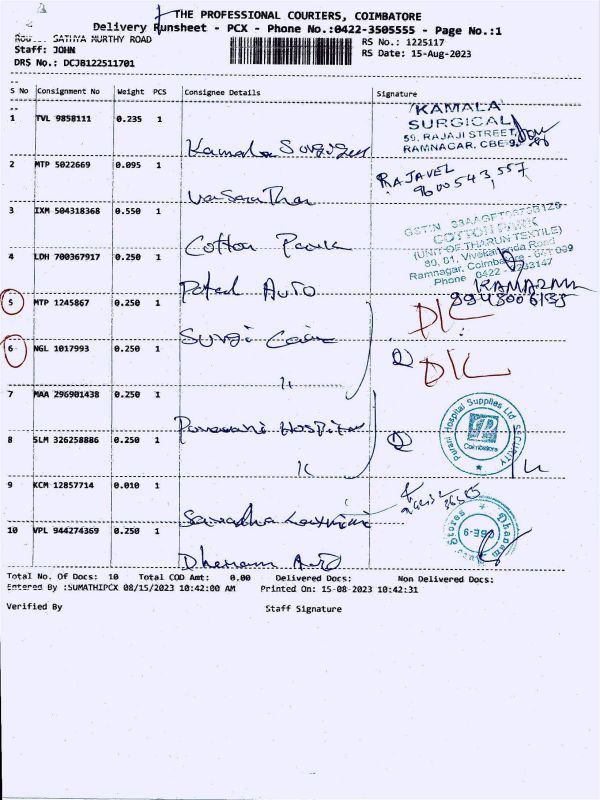 THE PROFESSIONAL COURIERS, COIMBATORE
Delivery Runsheet - PCX - Phone No.:0422-3505555 - Page No.:1
SATHYA MURTHY ROAD
RS No.: 1225117
Staff: JOHN
RS Date: 15-Aug-2023
DRS No.: DCJB122511701
S No Consignment No Weight PCS Consignee Details Signature
1 TVL 9858111 0.235 1
Kamala Surgical
KAMALA
SURGICAL
59, RAJAJI STREET,
RAMNAGAR, CBE-9.
2 MTP 5022669 0.095 1
RAJAVEL
9600543557
3 IXM 504318368 0.550 1
Cotton Park
COTTON PARK
(UNIT OF THARUN TEXTILE)
80, 81, Vivekananda Road
Ramnagar, Coimbatore - 641 009
Phone 0422 -
4 LDH 700367917 0.250 1
Patel Auto
5 MTP 1245867 0.250 1
Surgi Care
D/C
6 NGL 1017993 0.250 1
"
D/C
7 MAA 296901438 0.250 1
Hospital
Purani Hospital Supplies Ltd SECURITY
Coimbatore
8 SLM 326258886 0.250 1
9 KCM 12857714 0.010 1
10 VPL 944274369 0.250 1
Dhanam Auto
Dhanam
Stores
CBE-9
Total No. Of Docs: 10 Total COD Amt: 0.00 Delivered Docs: Non Delivered Docs:
Entered By :SUMATHIPCX 08/15/2023 10:42:00 AM Printed On: 15-08-2023 10:42:31
Verified By Staff Signature